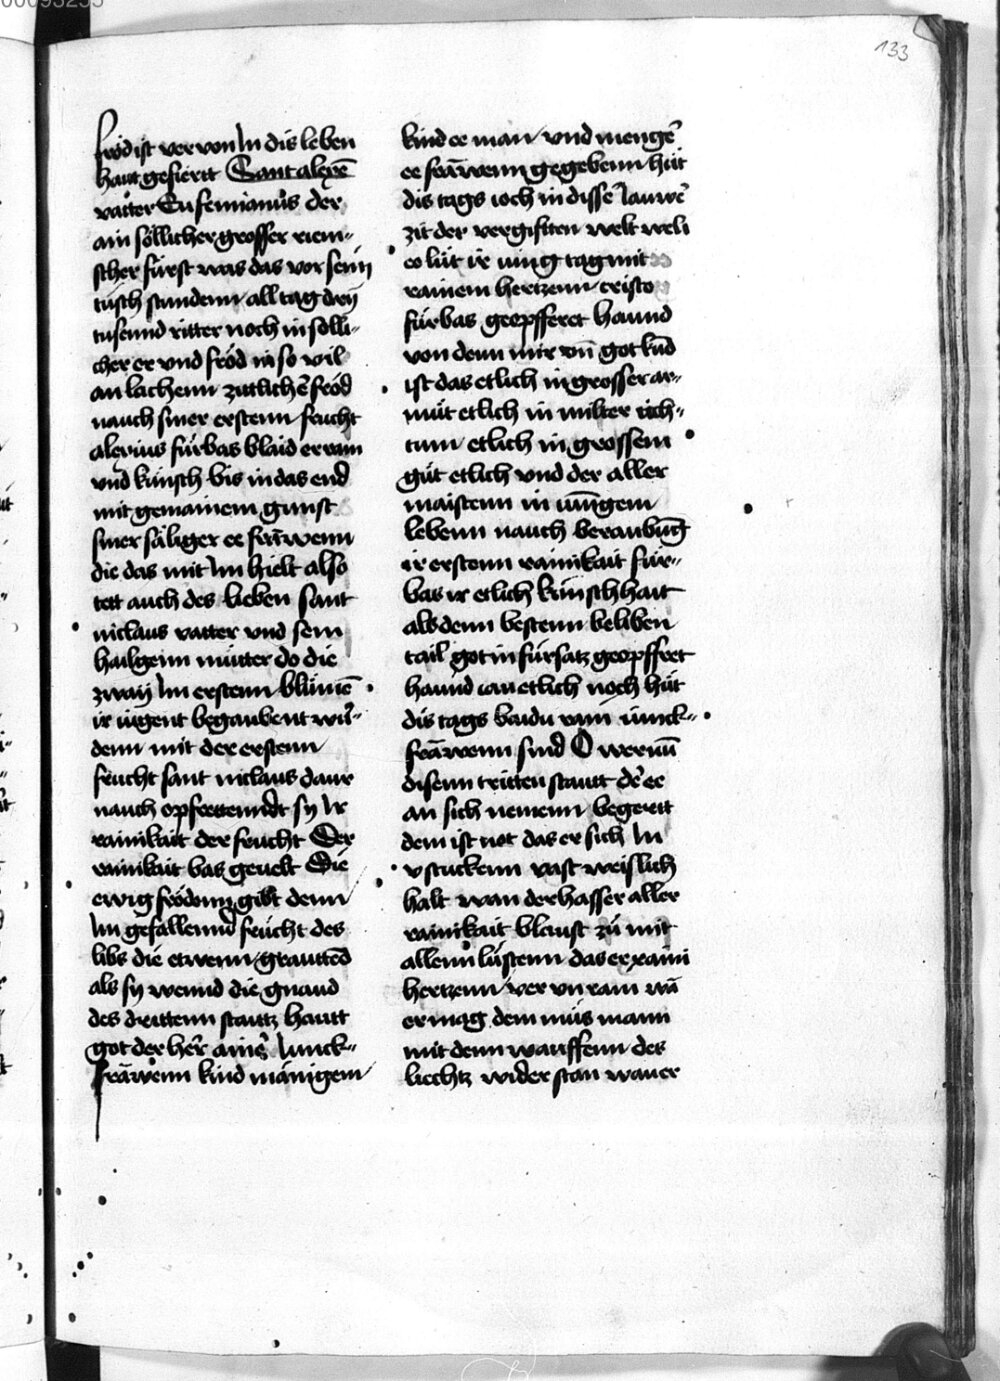 00093255
133
fröd ist ver von In dis leben
haut gefiertt Sant alexē
vatter Eufemianus der
ain söllicher grosser riem-
scher fürst was das vor seim
tusch stundenn all tag drÿ
tusennd ritter noch in sölli-
cher er vnd fröd in so vil
an lachenn zittlichē fröd
nauch siner erstenn frucht
alexius fürbas blaid er rain
vnd künsch bis in das end
mit gemainem gunst
siner säliger ee frāwenn
die das mit Im hielt also
tett auch des lieben sant
niclaus vatter vnd sein
hailgenn mutter do die
zwaÿ Im erstenn blumē
ir iugent begaubent wur-
denn mit der erstenn
frucht sant niclaus daur
nauch opffrettenndt sÿ Ir
rainikait der frucht Der
rainikait bas geuelt Die
ewig frödenn gibt denn
Im gefallennd frucht des
libs die etwenn grautted
als sÿ wennd die gnaud
des drittenn stautz hautt
got der her ainer Iunck-
frāwenn kind mänigem
kind ee man vnd menger
ee frāwenn gegebenn hüt
dis tags ioch in disser Iauwe
zit der vergifften welt weli
eo lüt ir iung tag mit
rainem hertzenn cristo
fürbas geopfferet haund
von denn mir vn̄ got kūd
ist das etlich in grosser ar-
mut etlich in milter rich-
tum etlich in grossem
gut etlich vnd der aller
maistenn in iungem
lebenn nauch beraubūg
ir erstenn rainikait für-
bas ir etlich künschhait
als denn bestenn beliben
tail got in fürsatz geopffret
haund etlich noch hüt
dis tags baidu rain iunck-
frāwenn sind O wer nun
disenn tritten stautt der ee
an sich nemenn begertt
dem ist not das er sich In
vstuckenn vast weislich
halt wan der hasser aller
rainikait blaust zu mit
allenn lüstenn das er raini
hertzenn ver vn rain wa
er mag dem mus mann
mit denn wauffenn des
liechtz wider stan wauer